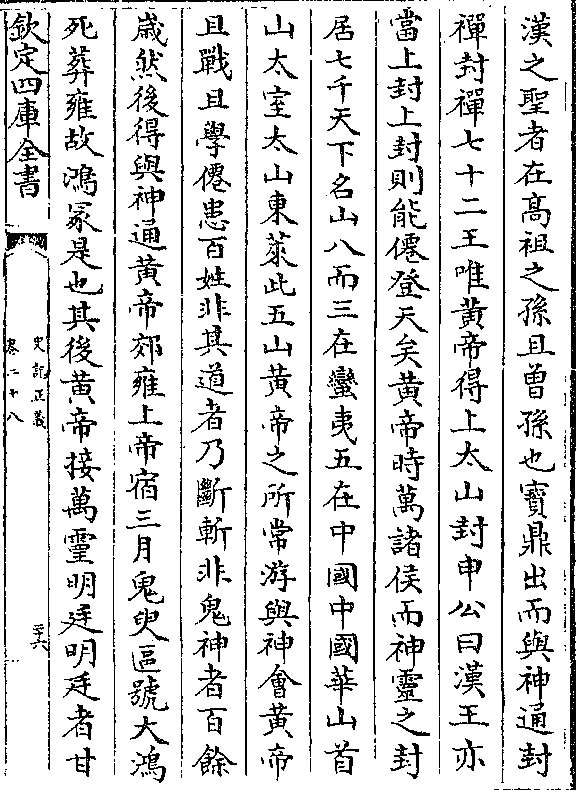 漢之聖者在髙祖之孫且曽孫也寶鼎出而與神通封
禪封禪七十二王唯黄帝得上太山封申公曰漢王亦
當上封上封則能僊登天矣黄帝時萬諸侯而神靈之封
居七千天下名山八而三在蠻夷五在中國中國華山首
山太室太山東萊此五山黄帝之所常游與神會黄帝
且戰且學僊患百姓非其道者乃斷斬非鬼神者百餘
歳然後得與神通黄帝郊雍上帝宿三月鬼臾區號大鴻
死葬雍故鴻冢是也其後黄帝接萬靈明廷明廷者甘
欽定四庫全書
史記正義
卷二十八